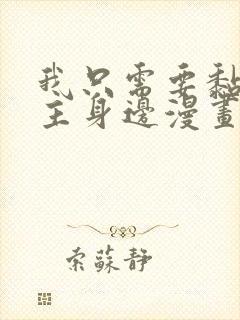 我只需要黏
主身邊漫畫
索蘇靜